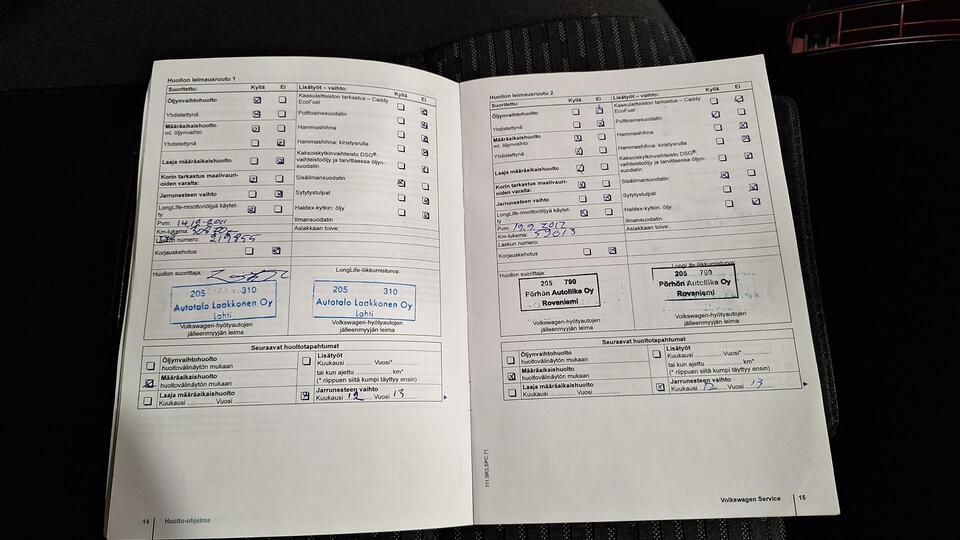 Huollon leimausruutu 1
Suoritettu: Kyllä Ei Lisätyöt – vaihto: Kyllä Ei
Öljynvaihtohuolto
Kaasulaitteiston tarkastus – Caddy
EcoFuel
Yhdistettynä
Polttoainesuodatin
Määräaikaishuolto
ml. öljynvaihto
Hammashihna
Yhdistettynä
Hammashihna: kiristysrulla
Laaja määräaikaishuolto
Kaksoiskytkinvaihteisto DSG®:
vaihteistoöljy ja tarvittaessa öljyn-
suodatin
Korin tarkastus maalivauri-
oiden varalta:
Sisäilmansuodatin
Jarrunesteen vaihto
Sytytystulpat
LongLife-moottoriöljyä käytet-
ty
Haldex-kytkin: öljy
Ilmansuodatin
Pvm. 14.12-2011
Asiakkaan toive:
Km-lukema:
Laskun numero: 219255
Korjauskehotus
Huollon suorittaja:
LongLife-liikkumisturva:
205 310
Autotalo Laakkonen Oy
Lahti
205 310
Autotalo Laakkonen Oy
Lahti
Volkswagen-hyötyautojen
jälleenmyyjän leima
Volkswagen-hyötyautojen
jälleenmyyjän leima
Seuraavat huoltotapahtumat
Öljynvaihtohuolto
huoltovälinäytön mukaan
Määräaikaishuolto
huoltovälinäytön mukaan
Laaja määräaikaishuolto
Kuukausi Vuosi
Lisätyöt
Kuukausi Vuosi*
tai kun ajettu km*
(* riippuen siitä kumpi täyttyy ensin)
Jarrunesteen vaihto
Kuukausi 12 Vuosi 13
14 Huolto-ohjelma
Huollon leimausruutu 2
Suoritettu: Kyllä Ei Lisätyöt – vaihto: Kyllä Ei
Öljynvaihtohuolto
Kaasulaitteiston tarkastus – Caddy
EcoFuel
Yhdistettynä
Polttoainesuodatin
Määräaikaishuolto
ml. öljynvaihto
Hammashihna
Yhdistettynä
Hammashihna: kiristysrulla
Laaja määräaikaishuolto
Kaksoiskytkinvaihteisto DSG®:
vaihteistoöljy ja tarvittaessa öljyn-
suodatin
Korin tarkastus maalivauri-
oiden varalta:
Sisäilmansuodatin
Jarrunesteen vaihto
Sytytystulpat
LongLife-moottoriöljyä käytet-
ty
Haldex-kytkin: öljy
Ilmansuodatin
Pvm. 19.9 2012
Asiakkaan toive:
Km-lukema: 59013
Laskun numero:
Korjauskehotus
Huollon suorittaja:
LongLife-liikkumisturva:
205 790
Pörhön Autoliike Oy
Rovaniemi
205 790
Pörhön Autoliike Oy
Rovaniemi
Volkswagen-hyötyautojen
jälleenmyyjän leima
Volkswagen-hyötyautojen
jälleenmyyjän leima
Seuraavat huoltotapahtumat
Öljynvaihtohuolto
huoltovälinäytön mukaan
Määräaikaishuolto
huoltovälinäytön mukaan
Laaja määräaikaishuolto
Kuukausi Vuosi
Lisätyöt
Kuukausi Vuosi*
tai kun ajettu km*
(* riippuen siitä kumpi täyttyy ensin)
Jarrunesteen vaihto
Kuukausi 12 Vuosi 13
111.5R3.SPC.71
Volkswagen Service 15